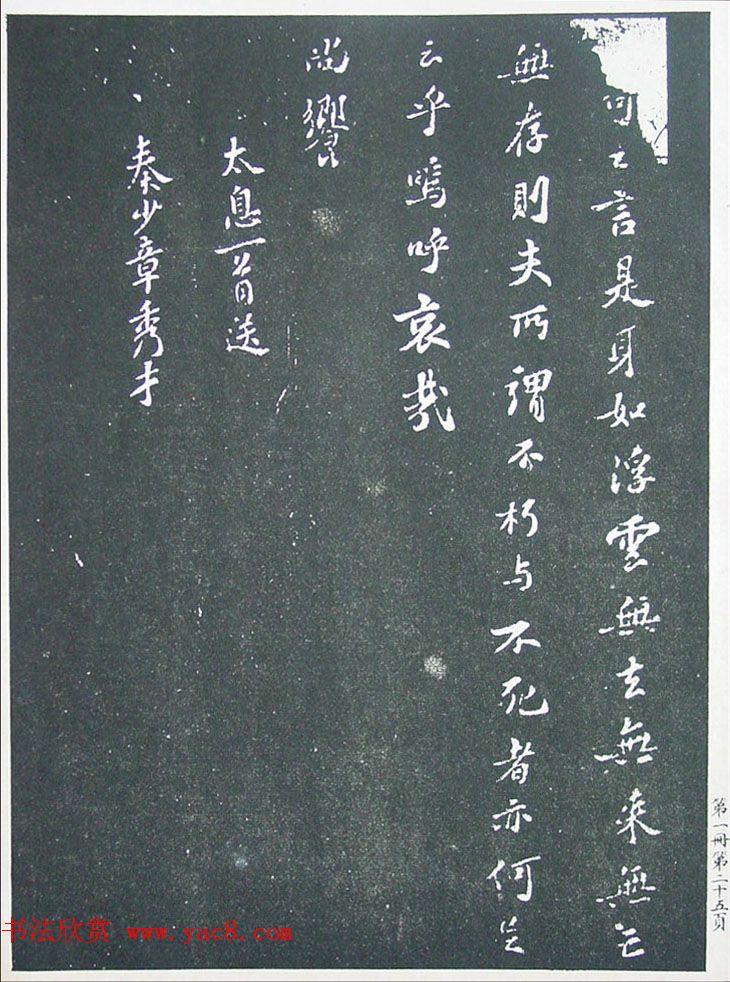 何之言是身如浮雲無去無來無亡
無存則夫所謂不朽与不死者亦何足
云乎嗚呼哀哉
尚饗
太息一首送
秦少章秀才
第一冊第二十五頁
书法欣赏 www.yac8.com